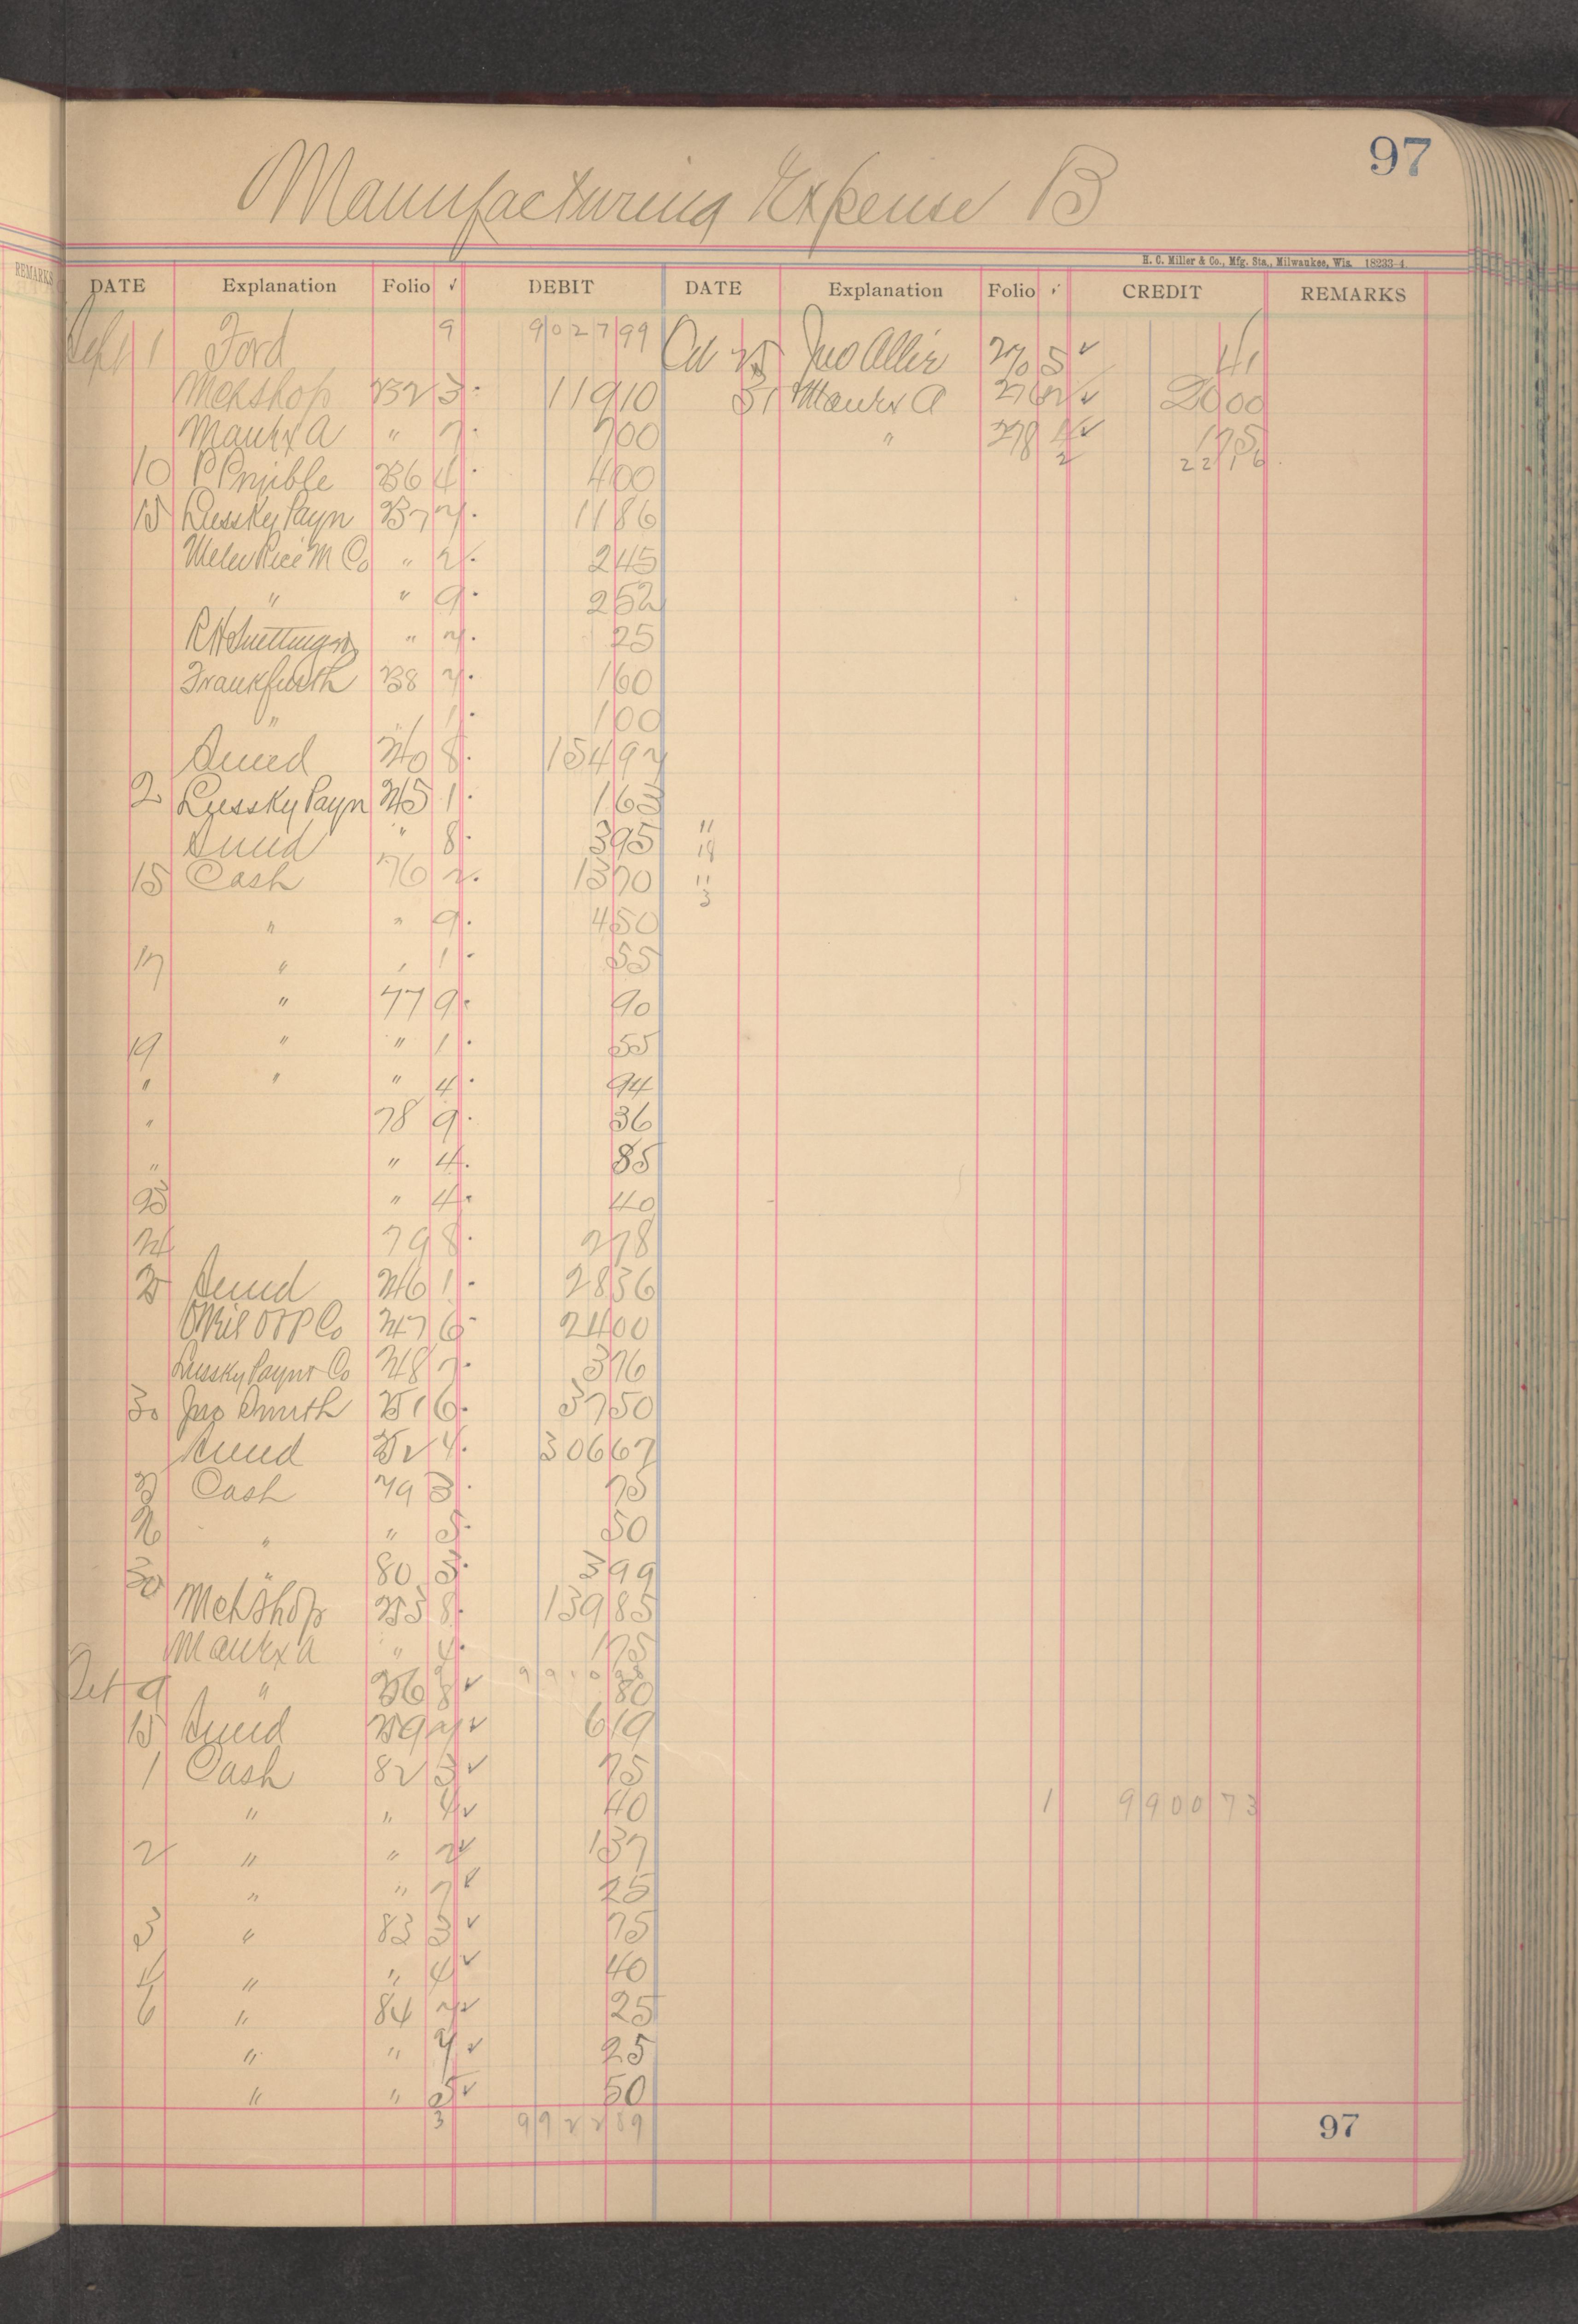 97
Manufacturing Expense B
H. C. Miller & Co., Mfg. Sta., Milwaukee, Wis. 18233-4.
REMARKS
DATE Explanation Folio ✓ DEBIT DATE Explanation Folio ✓ CREDIT REMARKS
Sept 1 Ford 9 9027 99 Oct 25 Jno Allis 270 5 ✓ 41
Mchshop 232 3 119 10 31 Manfx A 276 2 ✓ 20 00
Manfx A " 7 7 00 " 278 4 ✓ 1 75
2 22 16
10 236 4 4 00
15 Lussky Payn 237 7 11 86
" 2 2 45
" " 9 2 52
" 7 25
Frankfurth 238 7 1 60
" " 1 1 00
Sund 240 8 154 92
2 Lussky Payn 245 1 1 63
Sund " 8 3 95 11
18
15 Cash 76 2 13 70 11
3
" " 9 4 50
17 " " 1 55
" 77 9 90
19 " " 1 55
" " " 4 94
" 78 9 36
" " 4 85
23 " 4 40
24 79 8 2 78
25 Sund 246 1 28 36
247 6 24 00
Lussky Payn & Co 248 7 3 76
30 Jno Smith 251 6 37 50
Sund 252 4 306 67
25 Cash 79 3 75
26 " " 5 50
30 " 80 3 3 99
Mchshop 253 8 139 85
Manfx A " 4 1 75
9910 98
Oct 9 " 256 8 ✓ 80
15 Sund 259 7 ✓ 6 19
1 Cash 82 3 ✓ 75
" " 4 ✓ 40 1 9900 73
2 " " 2 ✓ 1 37
" " 7 ✓ 25
3 " 83 3 ✓ 75
4 " " 4 ✓ 40
6 " 84 7 ✓ 25
" " 7 ✓ 25
" " 5 ✓ 50
3 9922 89
97